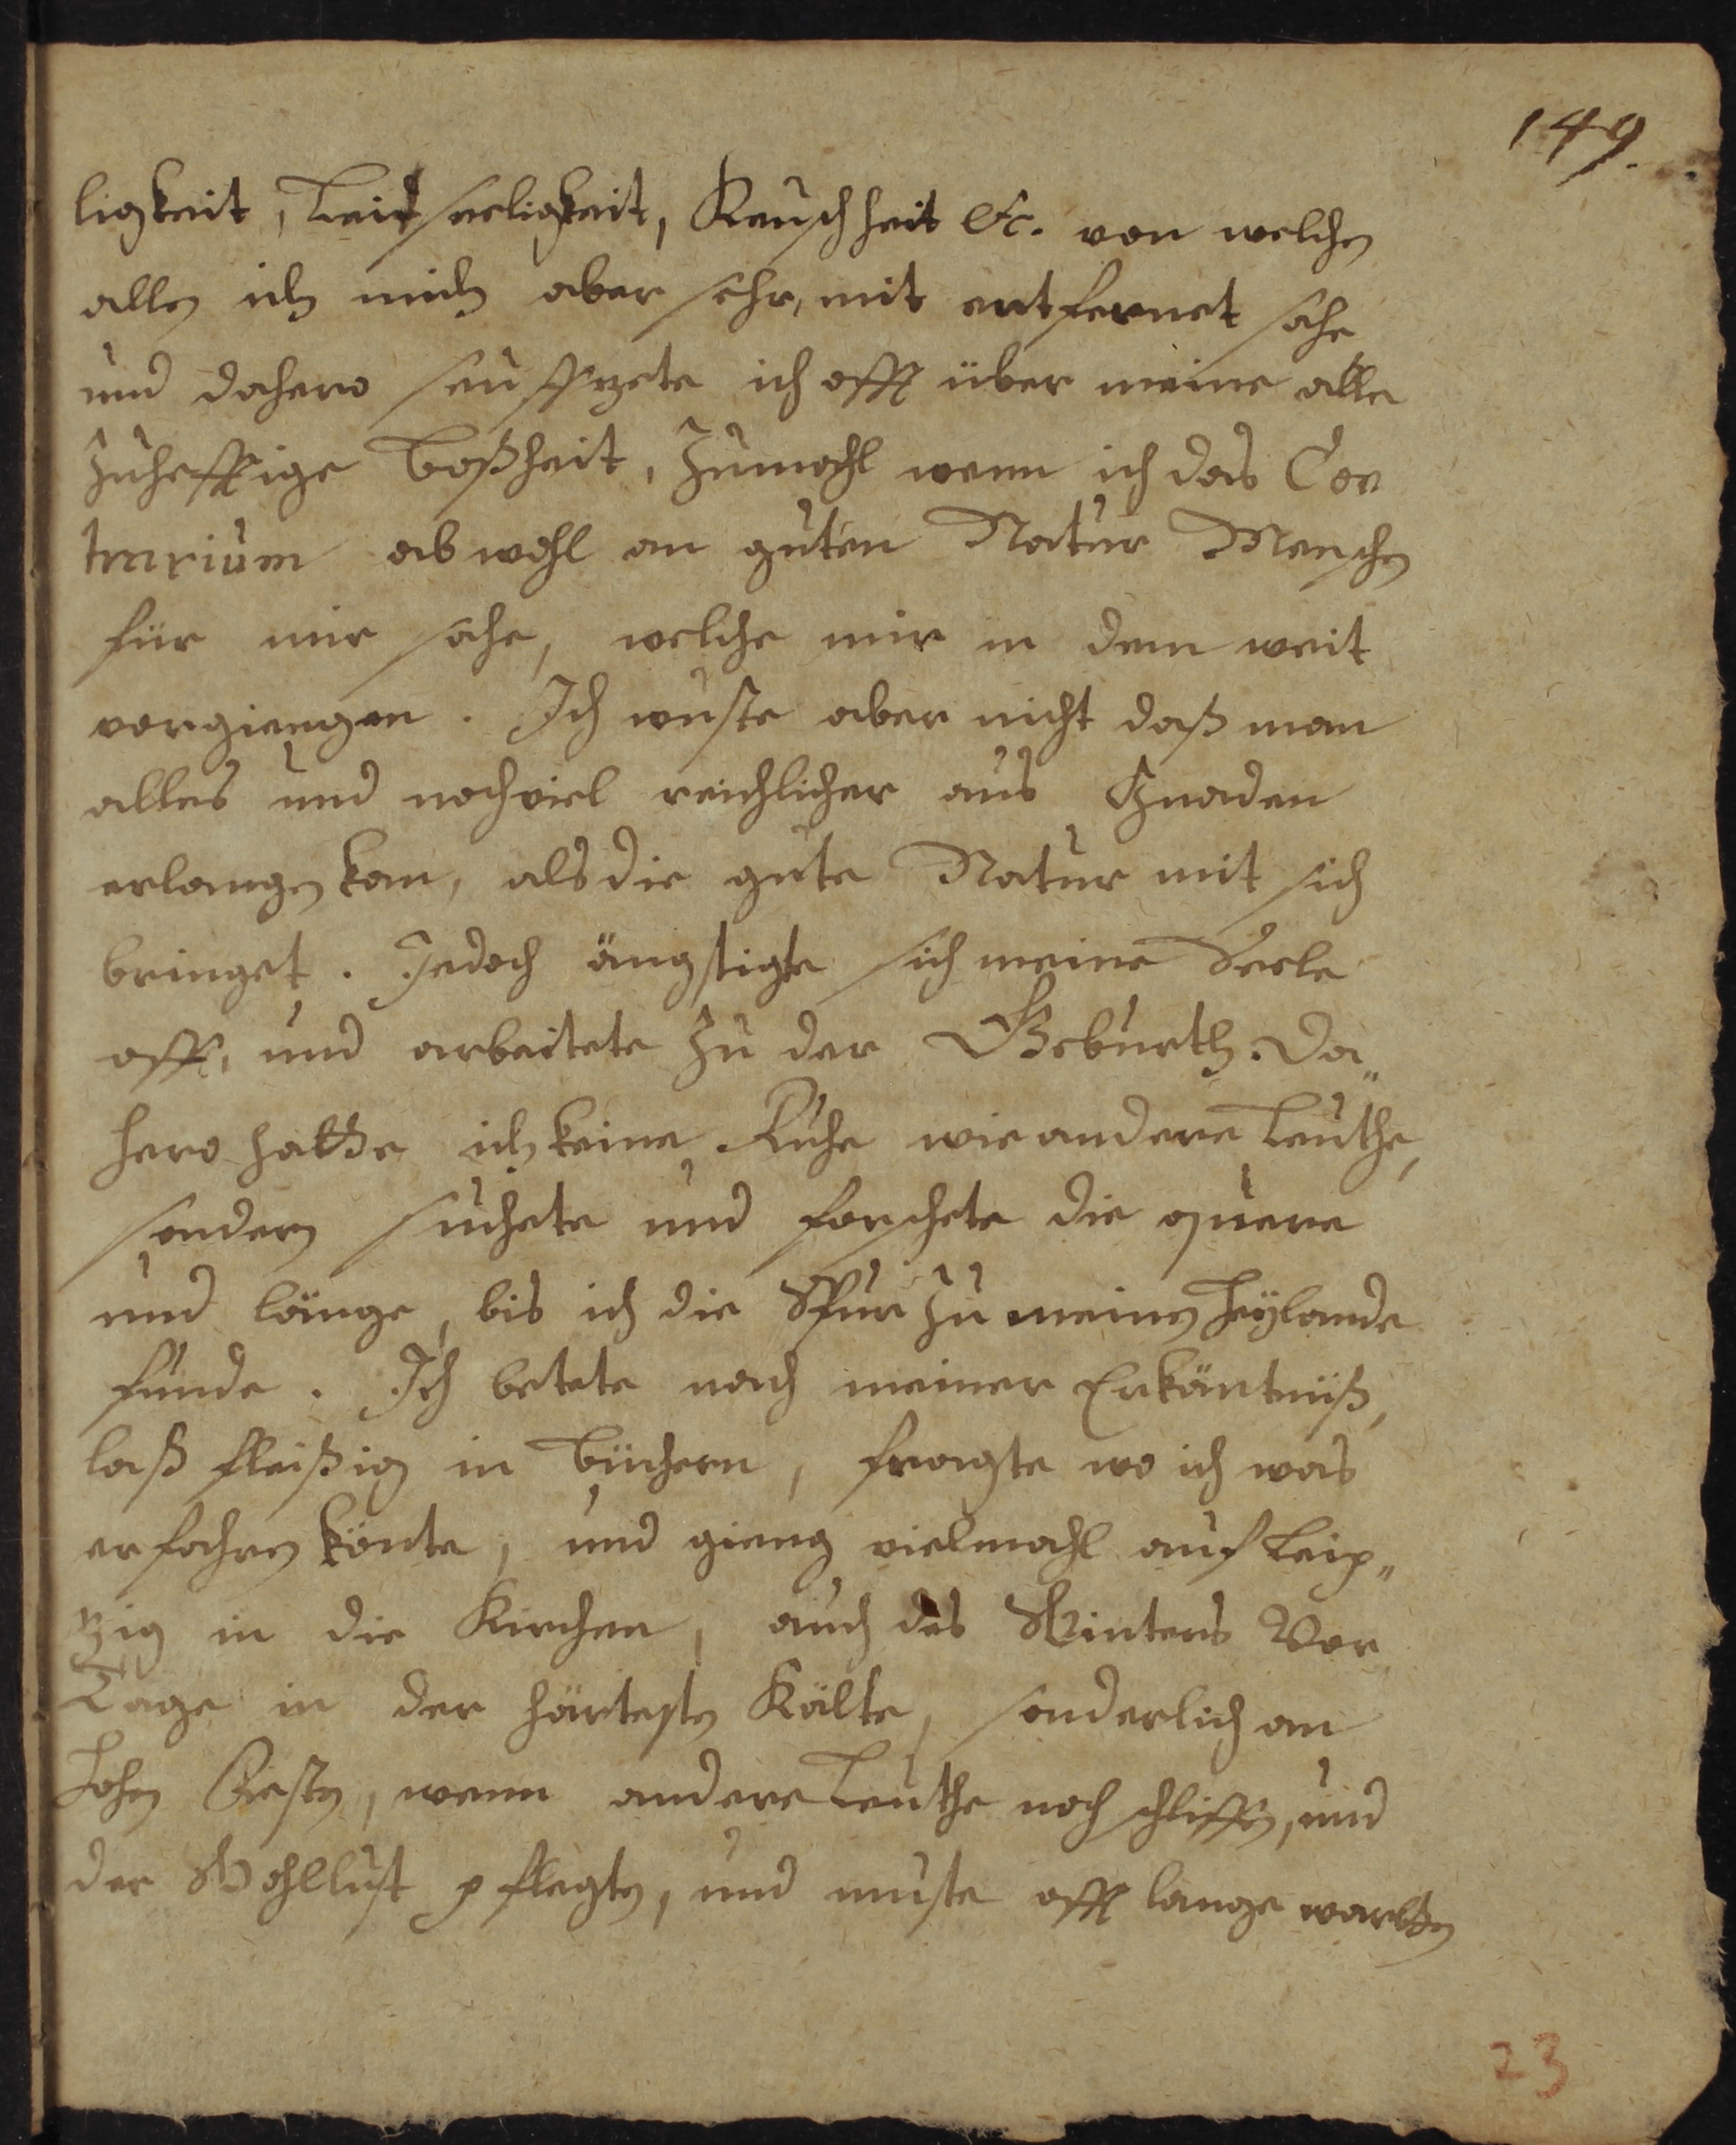 149.
ligkeit, Leitseeligkeit, Keuschheit etc. von welchen
allen ich mich aber sehr, mit entfernet sahe
und dahero seuffzete ich offt über meine alle
zuhefftige Boßheit, zumahl wenn ich das Con
trarium ob wohl an guten Natur Menschen
für mir sahe, welche mir in dem weit
vorgiengen. Ich wuste aber nicht daß man
alles und noch viel reichlicher aus Gnaden
erlangen kan, als die gute Natur mit sich
bringet. Jedoch ängstigte sich meine Seele
offt, und arbeitete zu der Geburth. Da„
hero hatte ich keine Ruhe wie andere Leuthe,
sondern suchete und forschete die quere
und länge, bis ich die Spur zu meinen Heylande
funde. Ich betete nach meiner Erkäntnüß,
laß fleißig in Büchern, fragte wo ich was
erfahren könte, und gieng vielmahl auf Leip„
zig in die Kirchen, auch des Winters Vor
Tage in der härtesten Kälte, sonderlich an
Hohen Festen, wenn andere Leuthe noch schlieffen, und
der Wohllust pflegten, und muste offt lange wartten
23